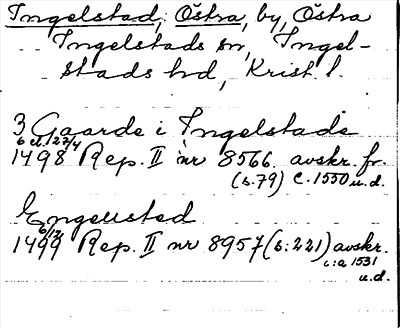 Ingelstad, Östra, by, Östra
Ingelstads sn, Ingel-
stads hd, Krist. l.
3 Gaarde i Ingelstade
1498 Rep. II nr 8566 avskr. fr.
(s. 79) c. 1550 u.d.
Engellsted
6/12
1499 Rep. II nr 8957 (s: 221) avskr.
c:a 1531
u.d.